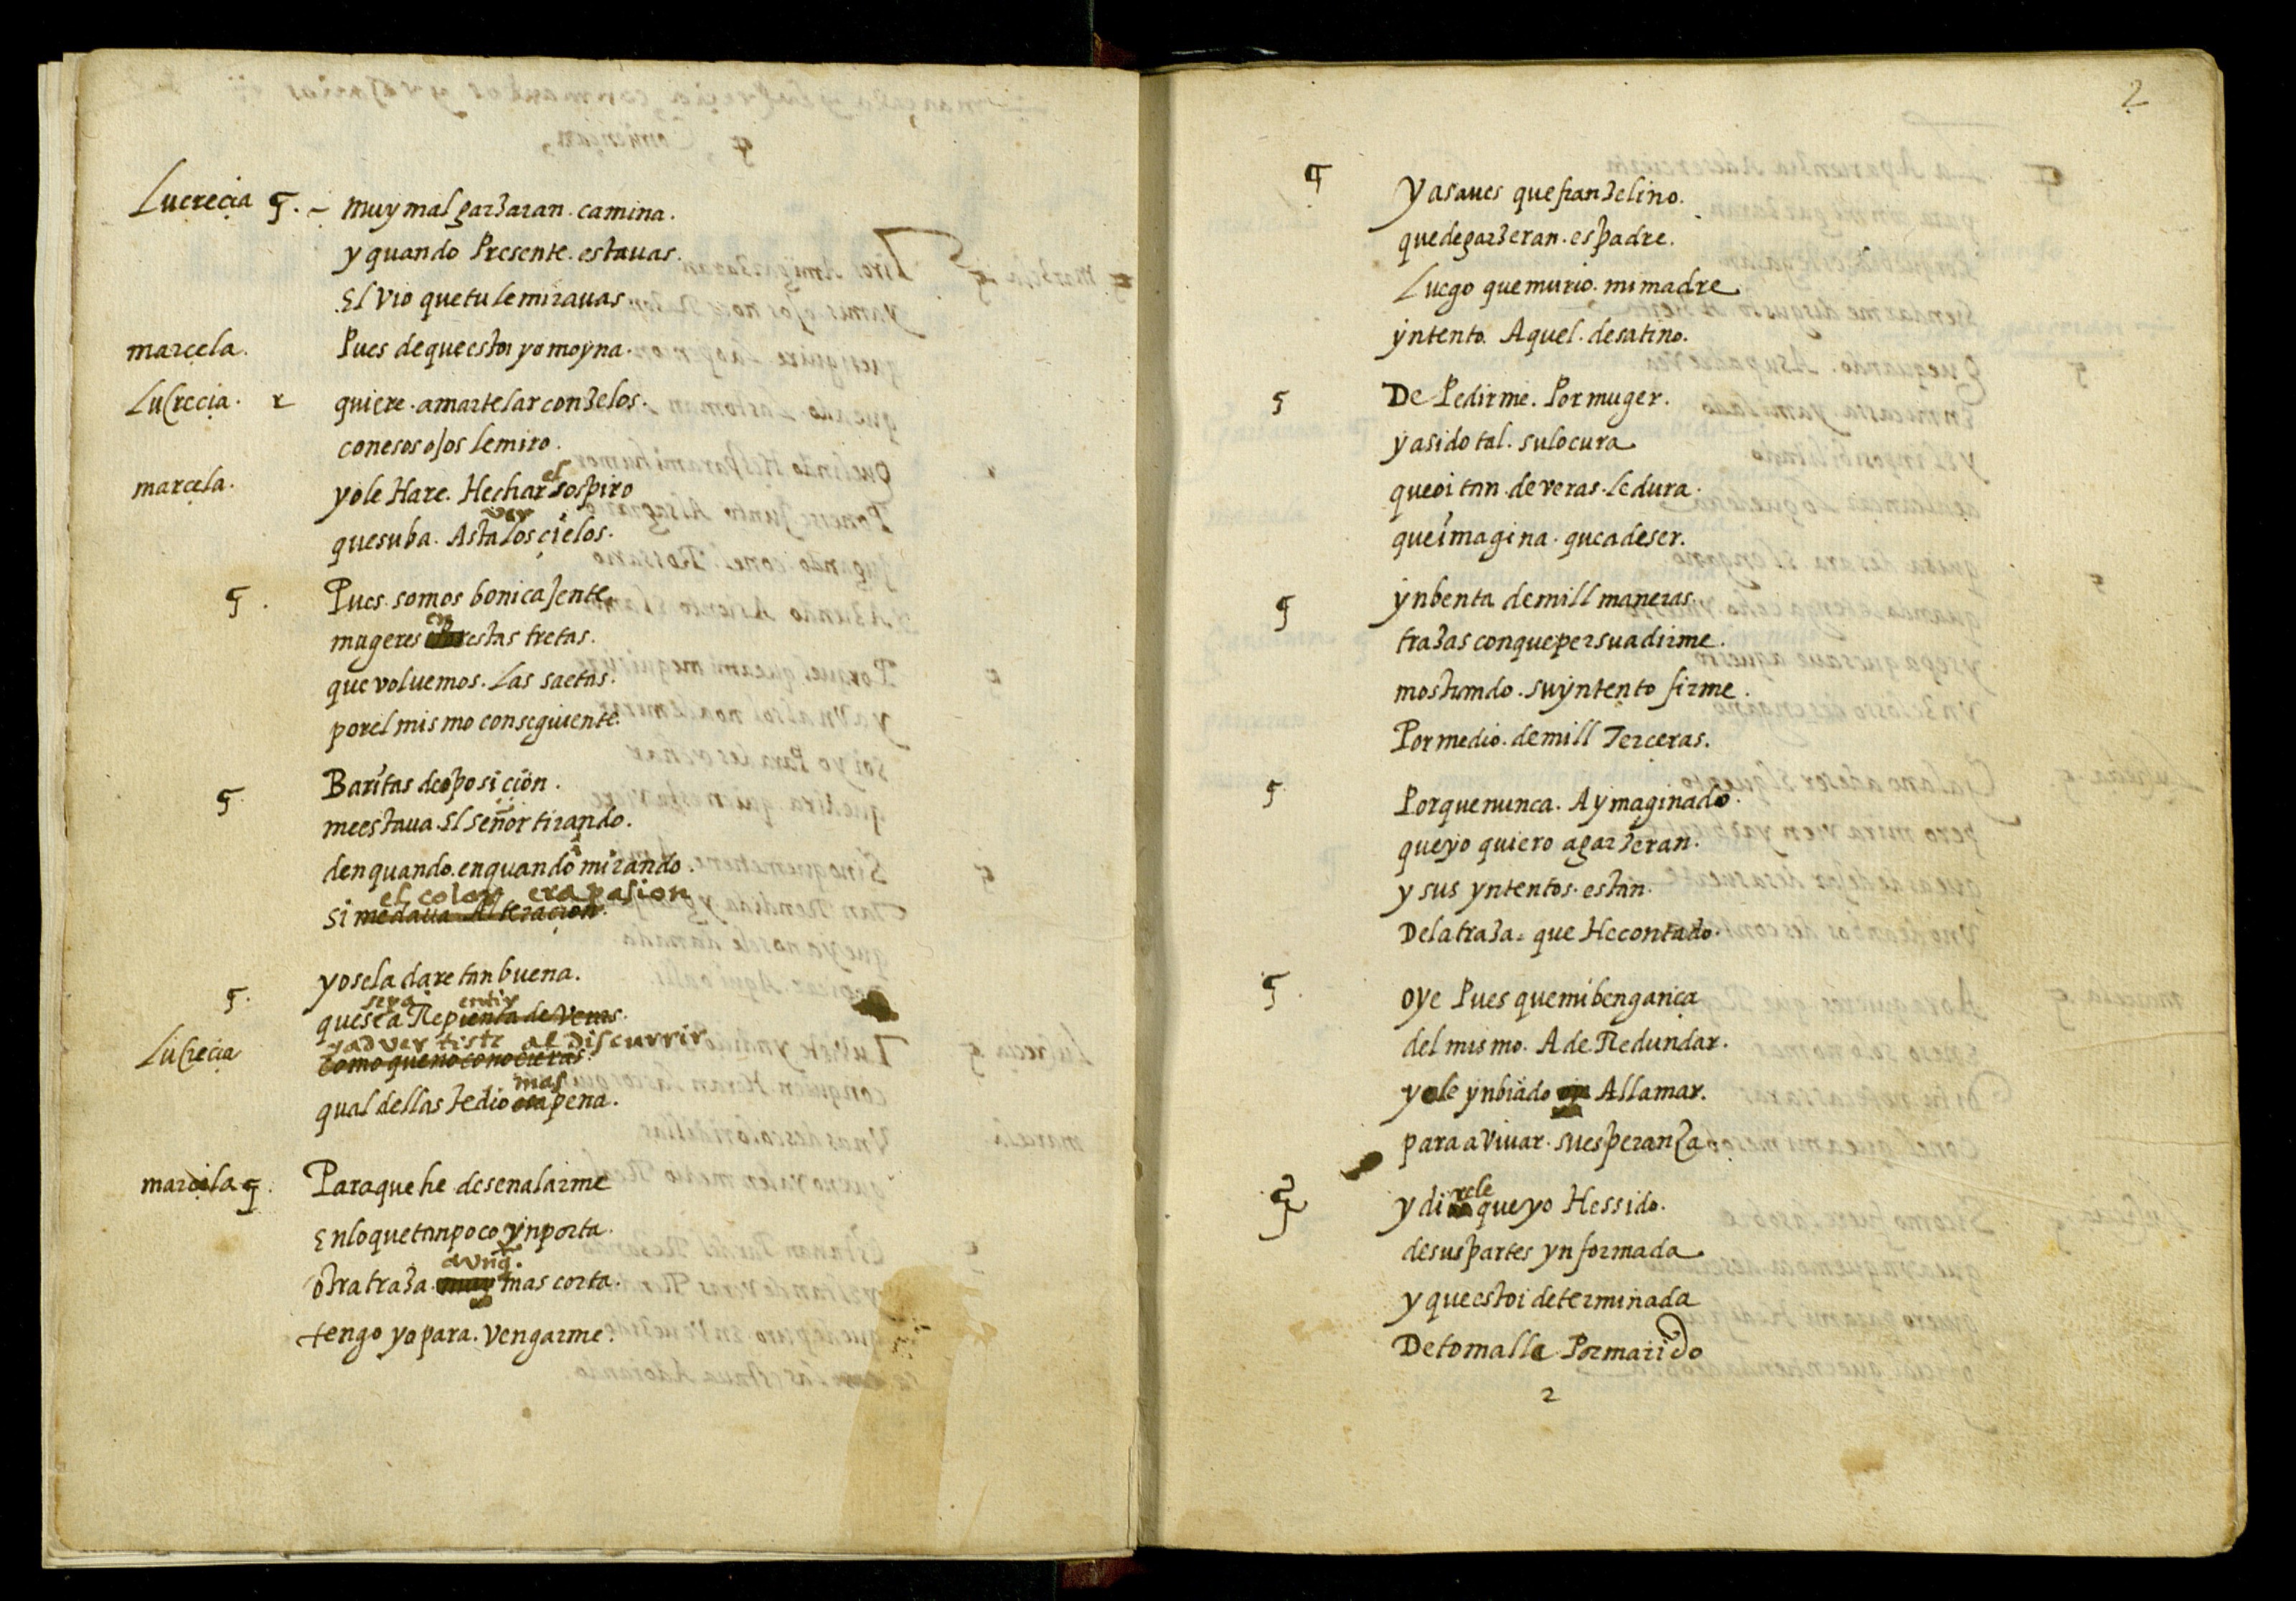 Lucrecia ¶. – muy mal garzaran. camina.
y quando Presente. estauas.
El vio quetu lemirauas.
marcela. Pues dequeestoi yo moyna.
Lucrecia. r quiere. amartelarconzelos.
conesos ojos lemiro.
marcela. yole Hare. Hechar el sospiro
quesuba. Asta ver los çielos.
¶. Pues somos bonica jente
mugeres en estas tretas.
que voluemos. Las saetas.
porel mismo consequiente.
¶. Baritas deoposiçion.
meestaua. El señor tirando.
denquando. enquando mirando.
el color era pasion
si medaua Alteraçion.
¶. yosela dare tan buena.
sera entir
quesea Repienta de Veras.
yadvertiste al discurrir
Lucrecia como quenoconocieras.
qual dellas tedio mas pena.
marcela ¶. Paraquehe desenalarme
Enloquetanpoco ynporta.
aunq.
otra traza. mas corta.
tengo yo para. vengarme.
2
¶ Yasaues que franzelino.
quedegarzeran. es padre.
Luego quemurio. mimadre
yntento. Aquel. desatino.
¶ De Pedirme. Pormuger.
yasido tal. sulocura
queoi tan. deveras. ledura.
queimagina. queadeser.
¶ ynbenta demill maneras.
trazas conquepersuadirme.
mostrando. suyntento firme.
Pormedio. demill Terçeras.
¶ Porquenunca. Aymaginado.
queyo quiero agarzeran.
y sus yntentos. estan.
Delatraza. que Hecontado.
¶. oye Pues quemibengança
del mismo. A de Redundar.
yole ynbiado Allamar.
para avivar. suesperanza.
¶ y di rele queyo Hessido.
desuspartes ynformada
y queestoi determinada
Detomalle Pormarido
2